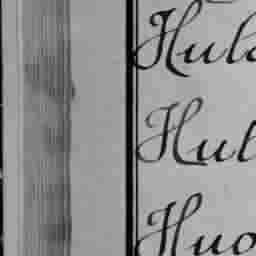 Hula
Hul
Huo